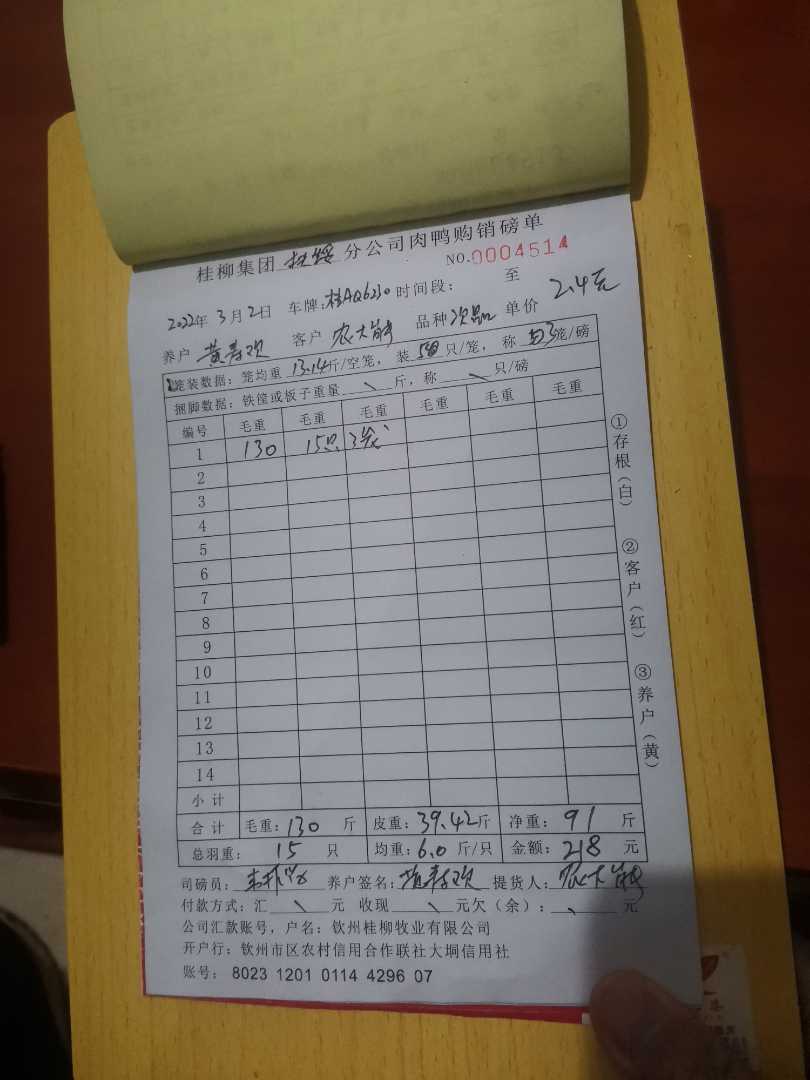 桂柳集团扶绥分公司肉鸭购销磅单
NO.0004514
2022年3月2日 车牌:桂AQ6230 时间段: 至
养户 黄寿欢 客户 农大 品种 次品 单价 2.4元
笼装数据:笼均重 13.14斤/空笼,装 只/笼,称 3笼/磅
捆脚数据:铁筐或板子重量 \ 斤,称 \ 只/磅
编号 毛重 毛重 毛重 毛重 毛重 毛重
1 130 15只 3笼
2
3
4
5
6
7
8
9
10
11
12
13
14
小计
合计 毛重:130 斤 皮重:39.42斤 净重:91 斤
总羽重: 15 只 均重:6.0 斤/只 金额:218 元
司磅员: 养户签名:黄寿欢 提货人:农大
付款方式:汇 \ 元 收现 \ 元欠(余): \ 元
公司汇款账号,户名:钦州桂柳牧业有限公司
开户行:钦州市区农村信用合作联社大垌信用社
账号: 8023 1201 0114 4296 07
①存根(白)
②客户(红)
③养户(黄)